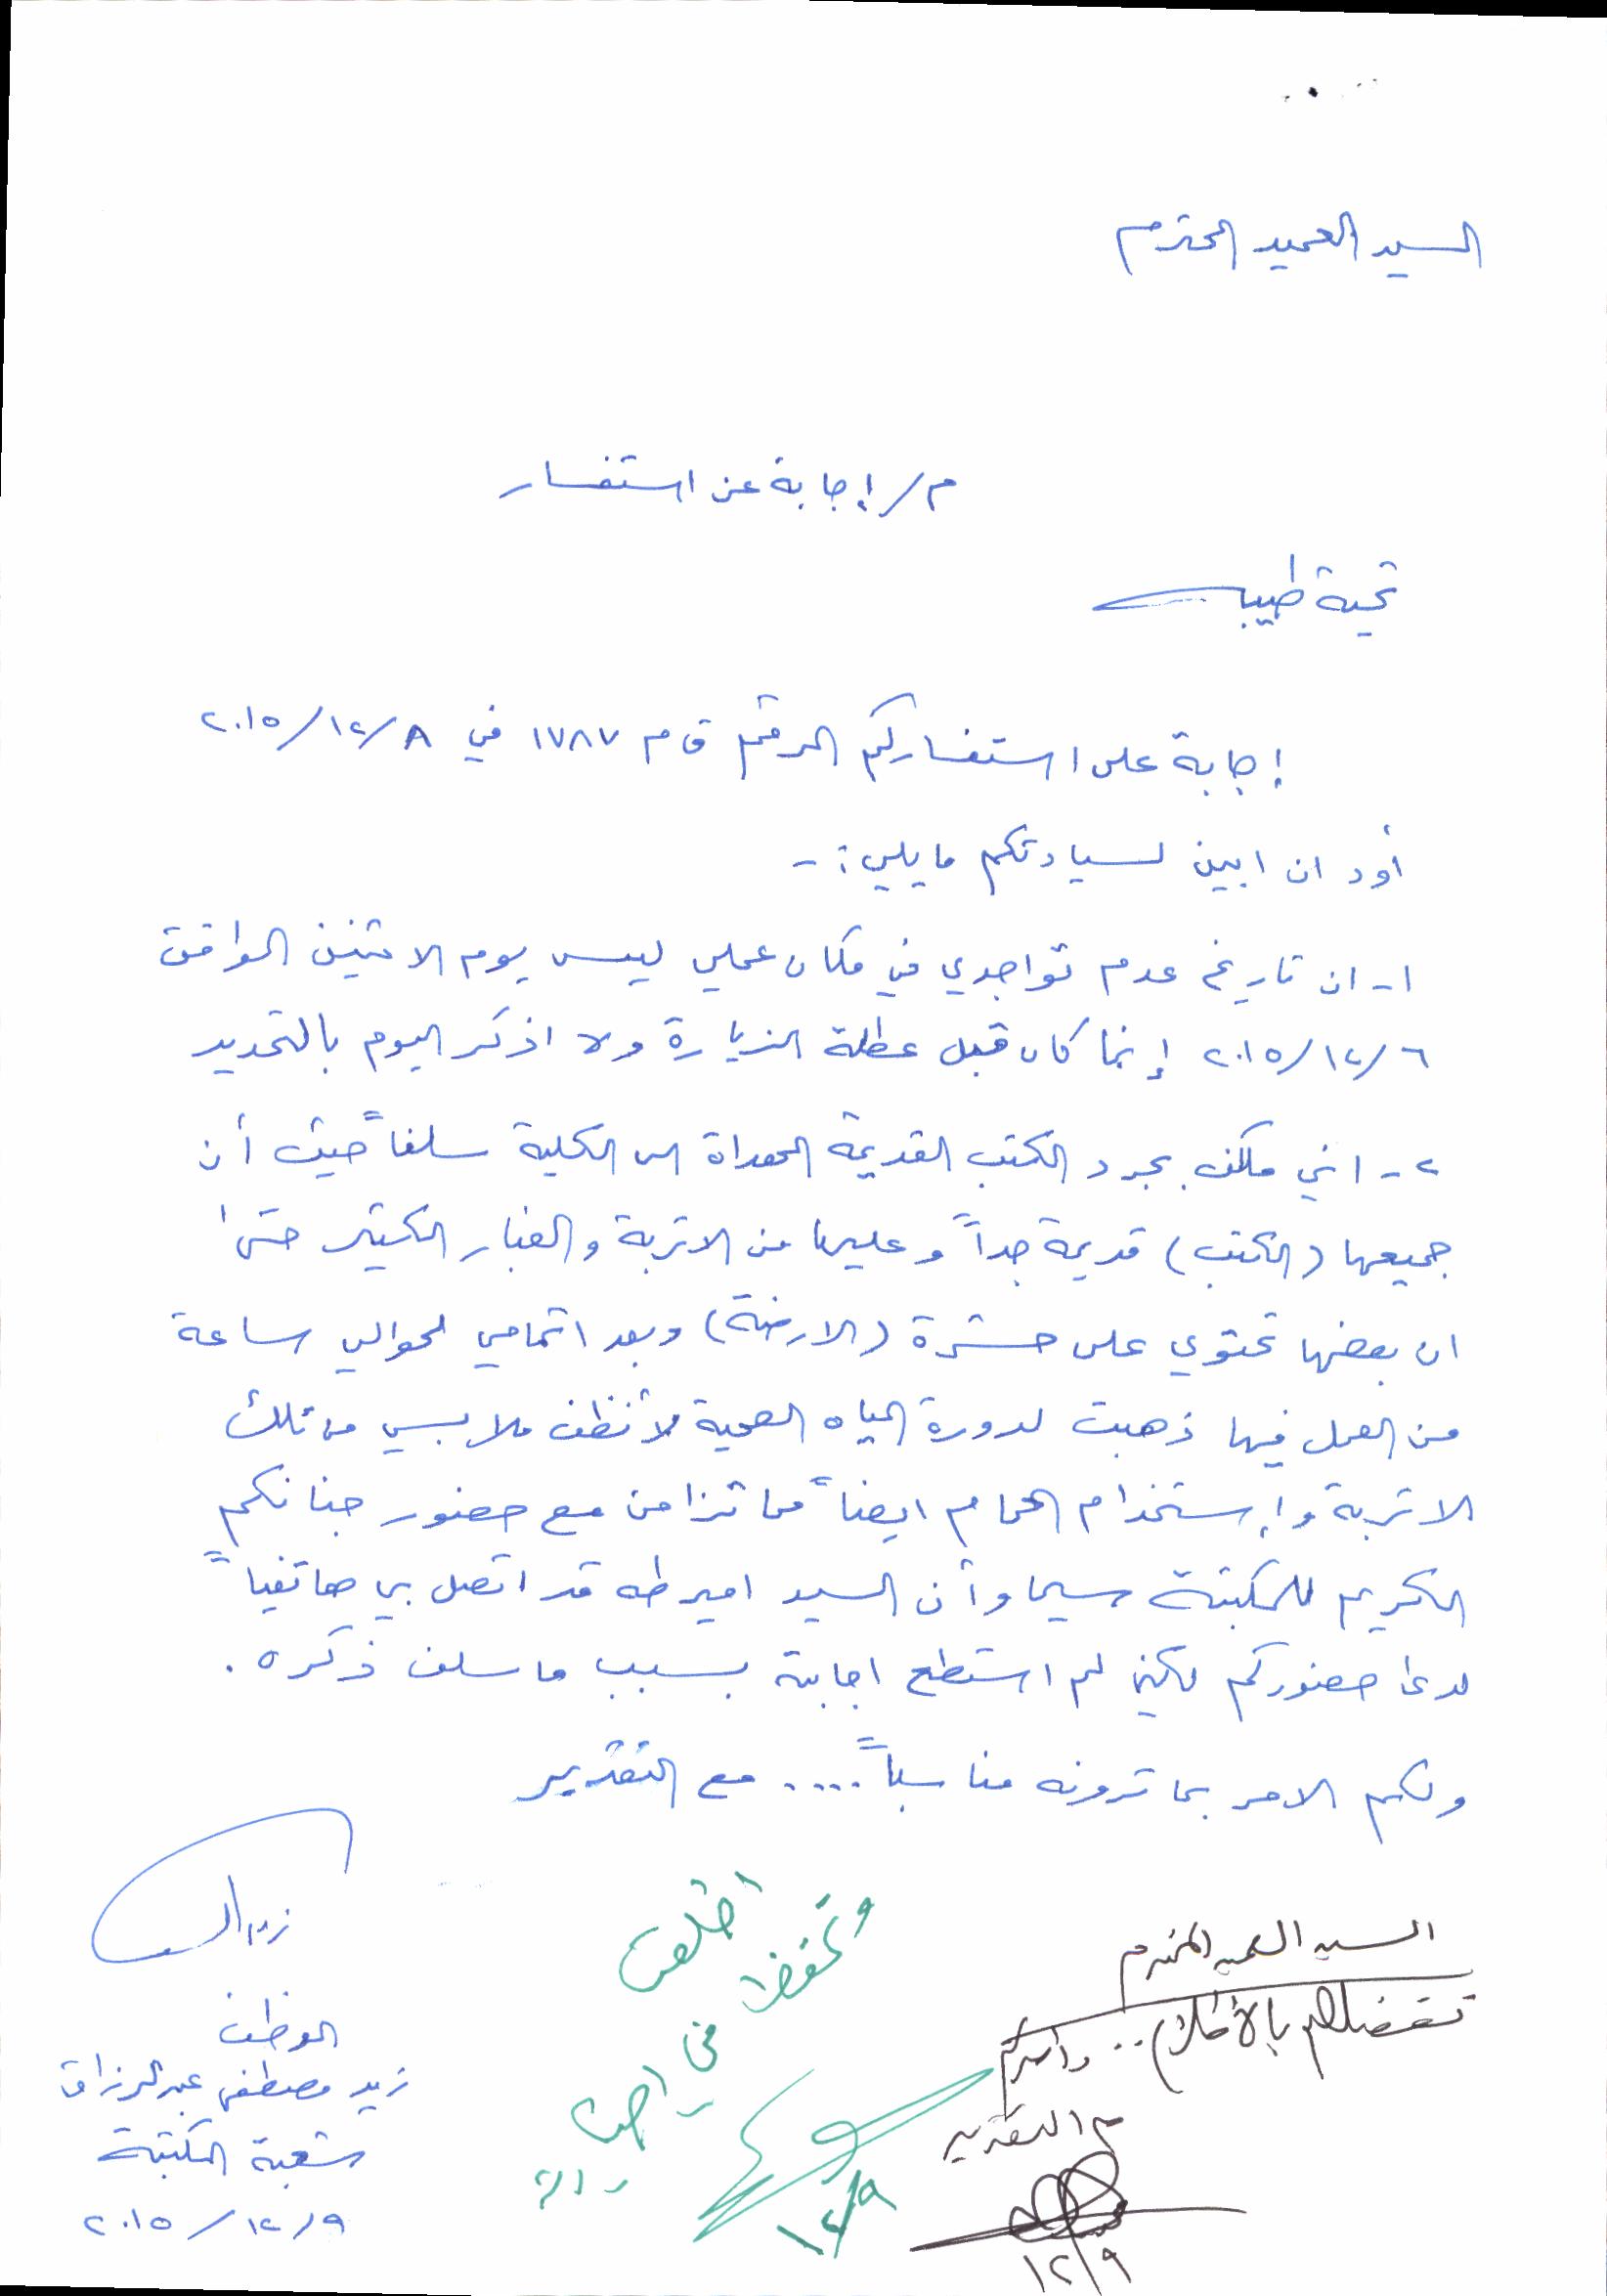 السيد العميد المحترم
م/ إجابة عن استفسار
تحية طيبة
إجابة على استفساركم المرقم ق م ١٧٨٧ في ٨/١٢/٢٠١٥
أود ان ابين لسيادتكم مايلي :-
١- ان تاريخ عدم تواجدي في مكان عملي ليس يوم الاثنين الموافق
٦/١٢/٢٠١٥ إنما كان قبل عطلة الزيارة ولا اذكر اليوم بالتحديد
٢- انني مكلف بجرد الكتب القديمة المهداة الى الكلية سلفاً حيث أن
جميعها (الكتب) قديمة جداً وعليها من الاتربة والغبار الكثير حتى
ان بعضها تحتوي على حشرة (الارضة) وبعد اتمامي لحوالي ساعة
من العمل فيها ذهبت لدورة المياه الصحية لأنظف ملابسي من تلك
الاتربة وإستخدام الحمام ايضاً مما تزامن مع حضور جنابكم
الكريم للمكتبة سيما وأن السيد امير طه قد اتصل بي هاتفياً
لدى حضوركم لكني لم استطع اجابته بسبب ما سلف ذكره .
ولكم الامر بما ترونه مناسباً .... مع التقدير
الموظف
زيد مصطفى عبدالرزاق
شعبة المكتبة
٩/١٢/٢٠١٥
السيد العميد المحترم
تفضلكم بالأطلاع .. وأمركم
مع التقدير
١٢/٩
اطلعت
وتحفظ
في
١٢/٩